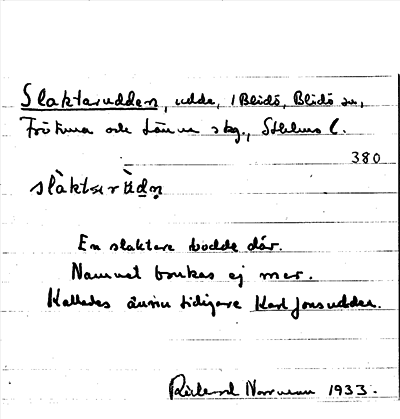 Slaktarudden, udde, i Blidö, Blidö sn,
Frötuna och Länna skg., Sthlms l.
380
slàktarùdn̥
En slaktare bodde där.
Namnet brukas ej mer.
Kallades ännu tidigare Karl Jonsudden.
Rickard 1933.